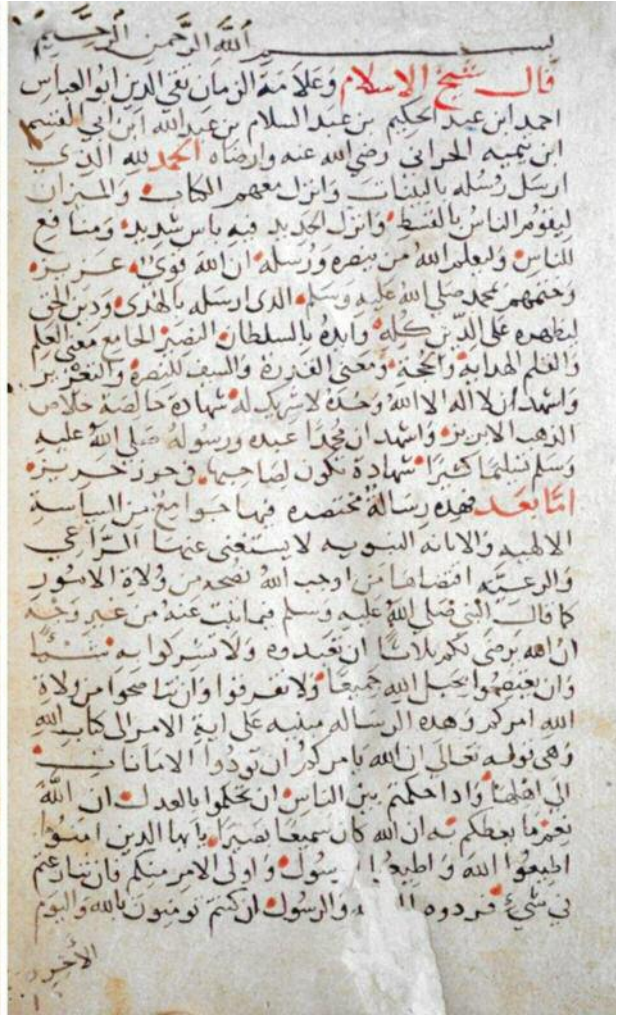 بسم الله الرحمن الرحيم
قال شيخ الاسلام وعلامة الزمان تقي الدين ابو العباس
احمد ابن عبد الحكيم بن عبد السلام بن عبد الله ابن ابي القسم
ابن تيميه الحراني رضي الله عنه وارضاه الحمد لله الذي
ارسل رسله بالبينات وانزل معهم الكتاب والميزان
ليقوم الناس بالقسط وانزل الحديد فيه باس شديد ومنافع
للناس وليعلم الله من ينصره ورسله ان الله قوي عزيز
وختمهم بمحمد صلى الله عليه وسلم الذي ارسله بالهدى ودين الحق
ليظهره على الدين كله وايده بالسلطان النصير الجامع معنى العلم
والقلم الهداية والحجة ومعنى القدرة والسيف للنصرة والتعزير
واشهد ان لا اله الا الله وحده لا شريك له شهادة خالصة خلاص
الذهب الابريز واشهد ان محمدا عبده ورسوله صلى الله عليه
وسلم تسليما كثيرا شهادة تكون لصاحبها في حرز حريز
اما بعد فهذه رسالة مختصره فيها جوامع من السياسة
الالهيه والانابه النبويه لا يستغني عنها الراعي
والرعية اقتضاها من اوجب الله نصحه من ولاة الامور
كما قال النبي صلى الله عليه وسلم فيما ثبت عنه من غير وجه
ان الله يرضى لكم ثلاثا ان تعبدوه ولا تشركوا به شيئا
وان تعتصموا بحبل الله جميعا ولا تفرقوا وان تناصحوا من ولاه
الله امركم وهذه الرساله مبنيه على اية الامر الى كتاب الله
وهي قوله تعالى ان الله يامركم ان تودوا الامانات
الى اهلها واذا حكمتم بين الناس ان تحكموا بالعدل ان الله
نعم ما يعظكم به ان الله كان سميعا بصيرا يا ايها الذين امنوا
اطيعوا الله واطيعوا الرسول واولى الامر منكم فان تنازعتم
في شيء فردوه الى الله والرسول ان كنتم تومنون بالله واليوم
الاخر